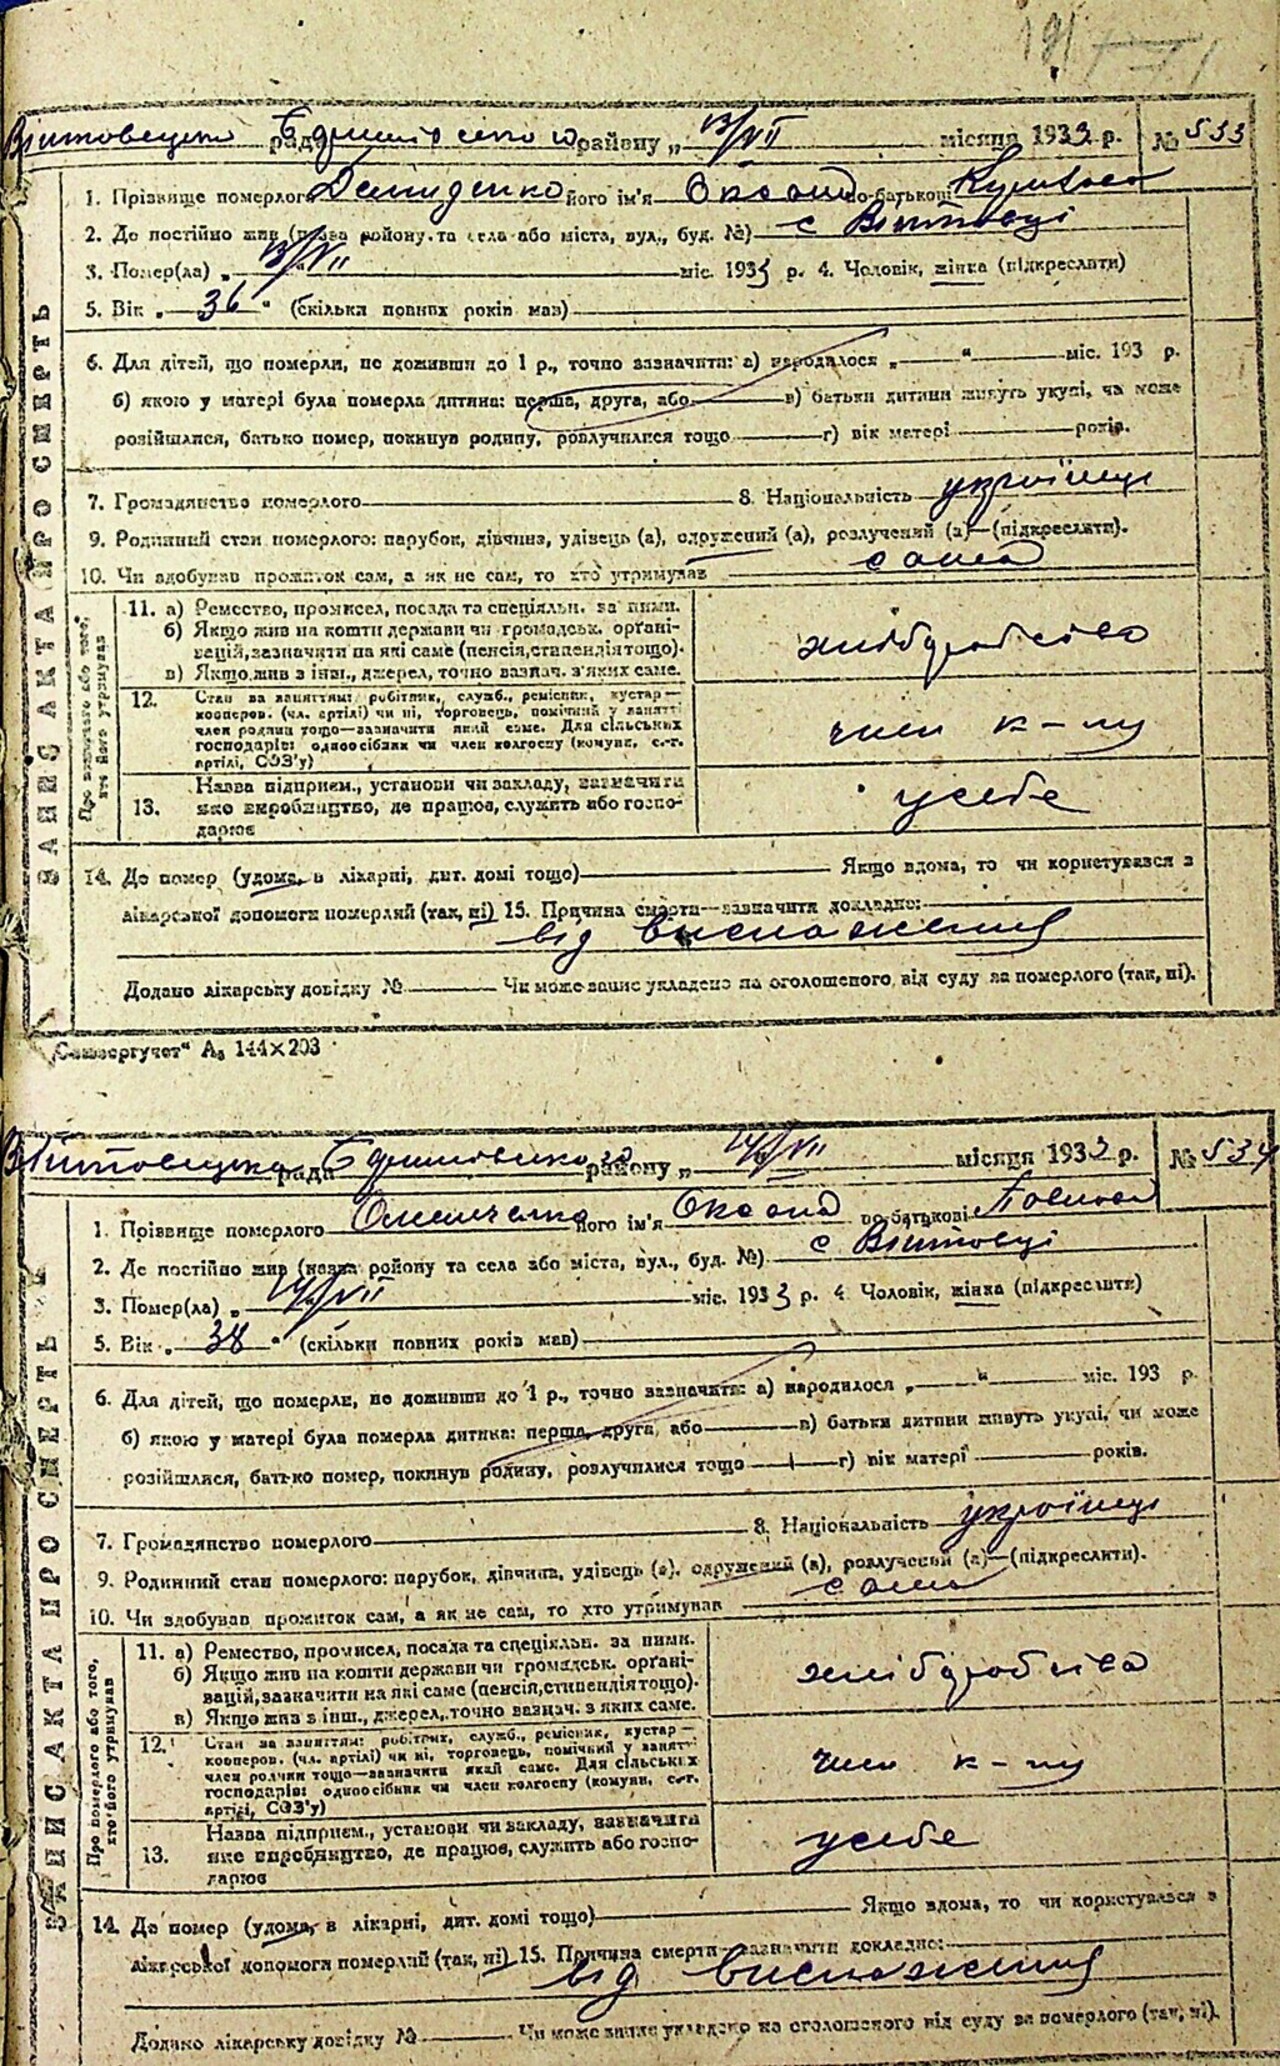 191
рада району „ 13/VII місяця 1933 р. № 533
ЗАПИС АКТА ПРО СМЕРТЬ
1. Прізвище померлого Демиденко його ім'я Оксана по-батькові
2. Де постійно жив (назва району та села або міста, вул., буд. №) с Вʼїтовці
3. Помер(ла) „ 13/VII міс. 1933 р. 4. Чоловік, жінка (підкреслити)
5. Вік „ 36 " (скільки повних років мав)
6. Для дітей, що померли, не доживши до 1 р., точно зазначити: а) народилося „ " міс. 193 р.
б) якою у матері була померла дитина: перша, друга, або в) батьки дитини живуть укупі, чи може
розійшлися, батько помер, покинув родину, розлучилися тощо г) вік матері років.
7. Громадянство померлого 8. Національність україниця
9. Родинний стан померлого: парубок, дівчина, удівець (а), одружений (а), розлучений (а)—(підкреслити).
10. Чи здобував прожиток сам, а як не сам, то хто утримував сама
Про померлого або того, хто його утримував
11. а) Ремество, промисел, посада та спеціяльн. за ними.
б) Якщо жив на кошти держави чи громадськ. орґані-
зацій, зазначити на які саме (пенсія, стипендія тощо).
в) Якщо жив з інш., джерел, точно вазнач. з яких саме.
хліборобство
12. Стан за заняттям: робітник, служб., ремісник, кустар—
кооперов. (чл. артілі) чи ні, торговець, помічний у занятті
член родини тощо—зазначити який саме. Для сільських
господарів: одноосібник чи член колгоспу (комуни, с.-г.
артілі, СОЗ'у)
член к-пу
13. Назва підприєм., установи чи закладу, зазначити
яке виробництво, де працює, служить або госпо-
дарює
у себе
14. Де помер (удома, в лікарні, дит. домі тощо) Якщо вдома, то чи користувався з
лікарської допомоги померлий (так, ні) 15. Причина смерти—зазначити докладно:
від виснаження
Додано лікарську довідку № Чи може запис укладено на оголошеного від суду за померлого (так, ні).
А₅ 144×203
рада району „ 14/VII місяця 1933 р. № 534
ЗАПИС АКТА ПРО СМЕРТЬ
1. Прізвище померлого його ім'я Оксана по-батькові
2. Де постійно жив (назва району та села або міста, вул., буд. №) с Вʼїтовці
3. Помер(ла) „ 14/VII міс. 1933 р. 4 Чоловік, жінка (підкреслити)
5. Вік „ 38 " (скільки повних років мав)
6. Для дітей, що померли, не доживши до 1 р., точно зазначити: а) народилося „ " міс. 193 р.
б) якою у матері була померла дитина: перша, друга, або в) батьки дитини живуть укупі, чи може
розійшлися, батько помер, покинув родину, розлучилися тощо г) вік матері років.
7. Громадянство померлого 8. Національність україниця
9. Родинний стан померлого: парубок, дівчина, удівець (а), одружений (а), розлучений (а)—(підкреслити).
10. Чи здобував прожиток сам, а як не сам, то хто утримував сама
Про померлого або того, хто його утримував
11. а) Ремество, промисел, посада та спеціяльн. за ними.
б) Якщо жив на кошти держави чи громадськ. орґані-
зацій, зазначити на які саме (пенсія, стипендія тощо).
в) Якщо жив з інш., джерел, точно вазнач. з яких саме.
хліборобство
12. Стан за заняттям: робітник, служб., ремісник, кустар—
кооперов. (чл. артілі) чи ні, торговець, помічний у занятті
член родини тощо—зазначити який саме. Для сільських
господарів: одноосібник чи член колгоспу (комуни, с.-г.
артілі, СОЗ'у)
член к-пу
13. Назва підприєм., установи чи закладу, зазначити
яке виробництво, де працює, служить або госпо-
дарює
у себе
14. Де помер (удома, в лікарні, дит. домі тощо) Якщо вдома, то чи користувався з
лікарської допомоги померлий (так, ні) 15. Причина смерти—зазначити докладно:
від виснаження
Додано лікарську довідку № Чи може запис укладено на оголошеного від суду за померлого (так, ні).